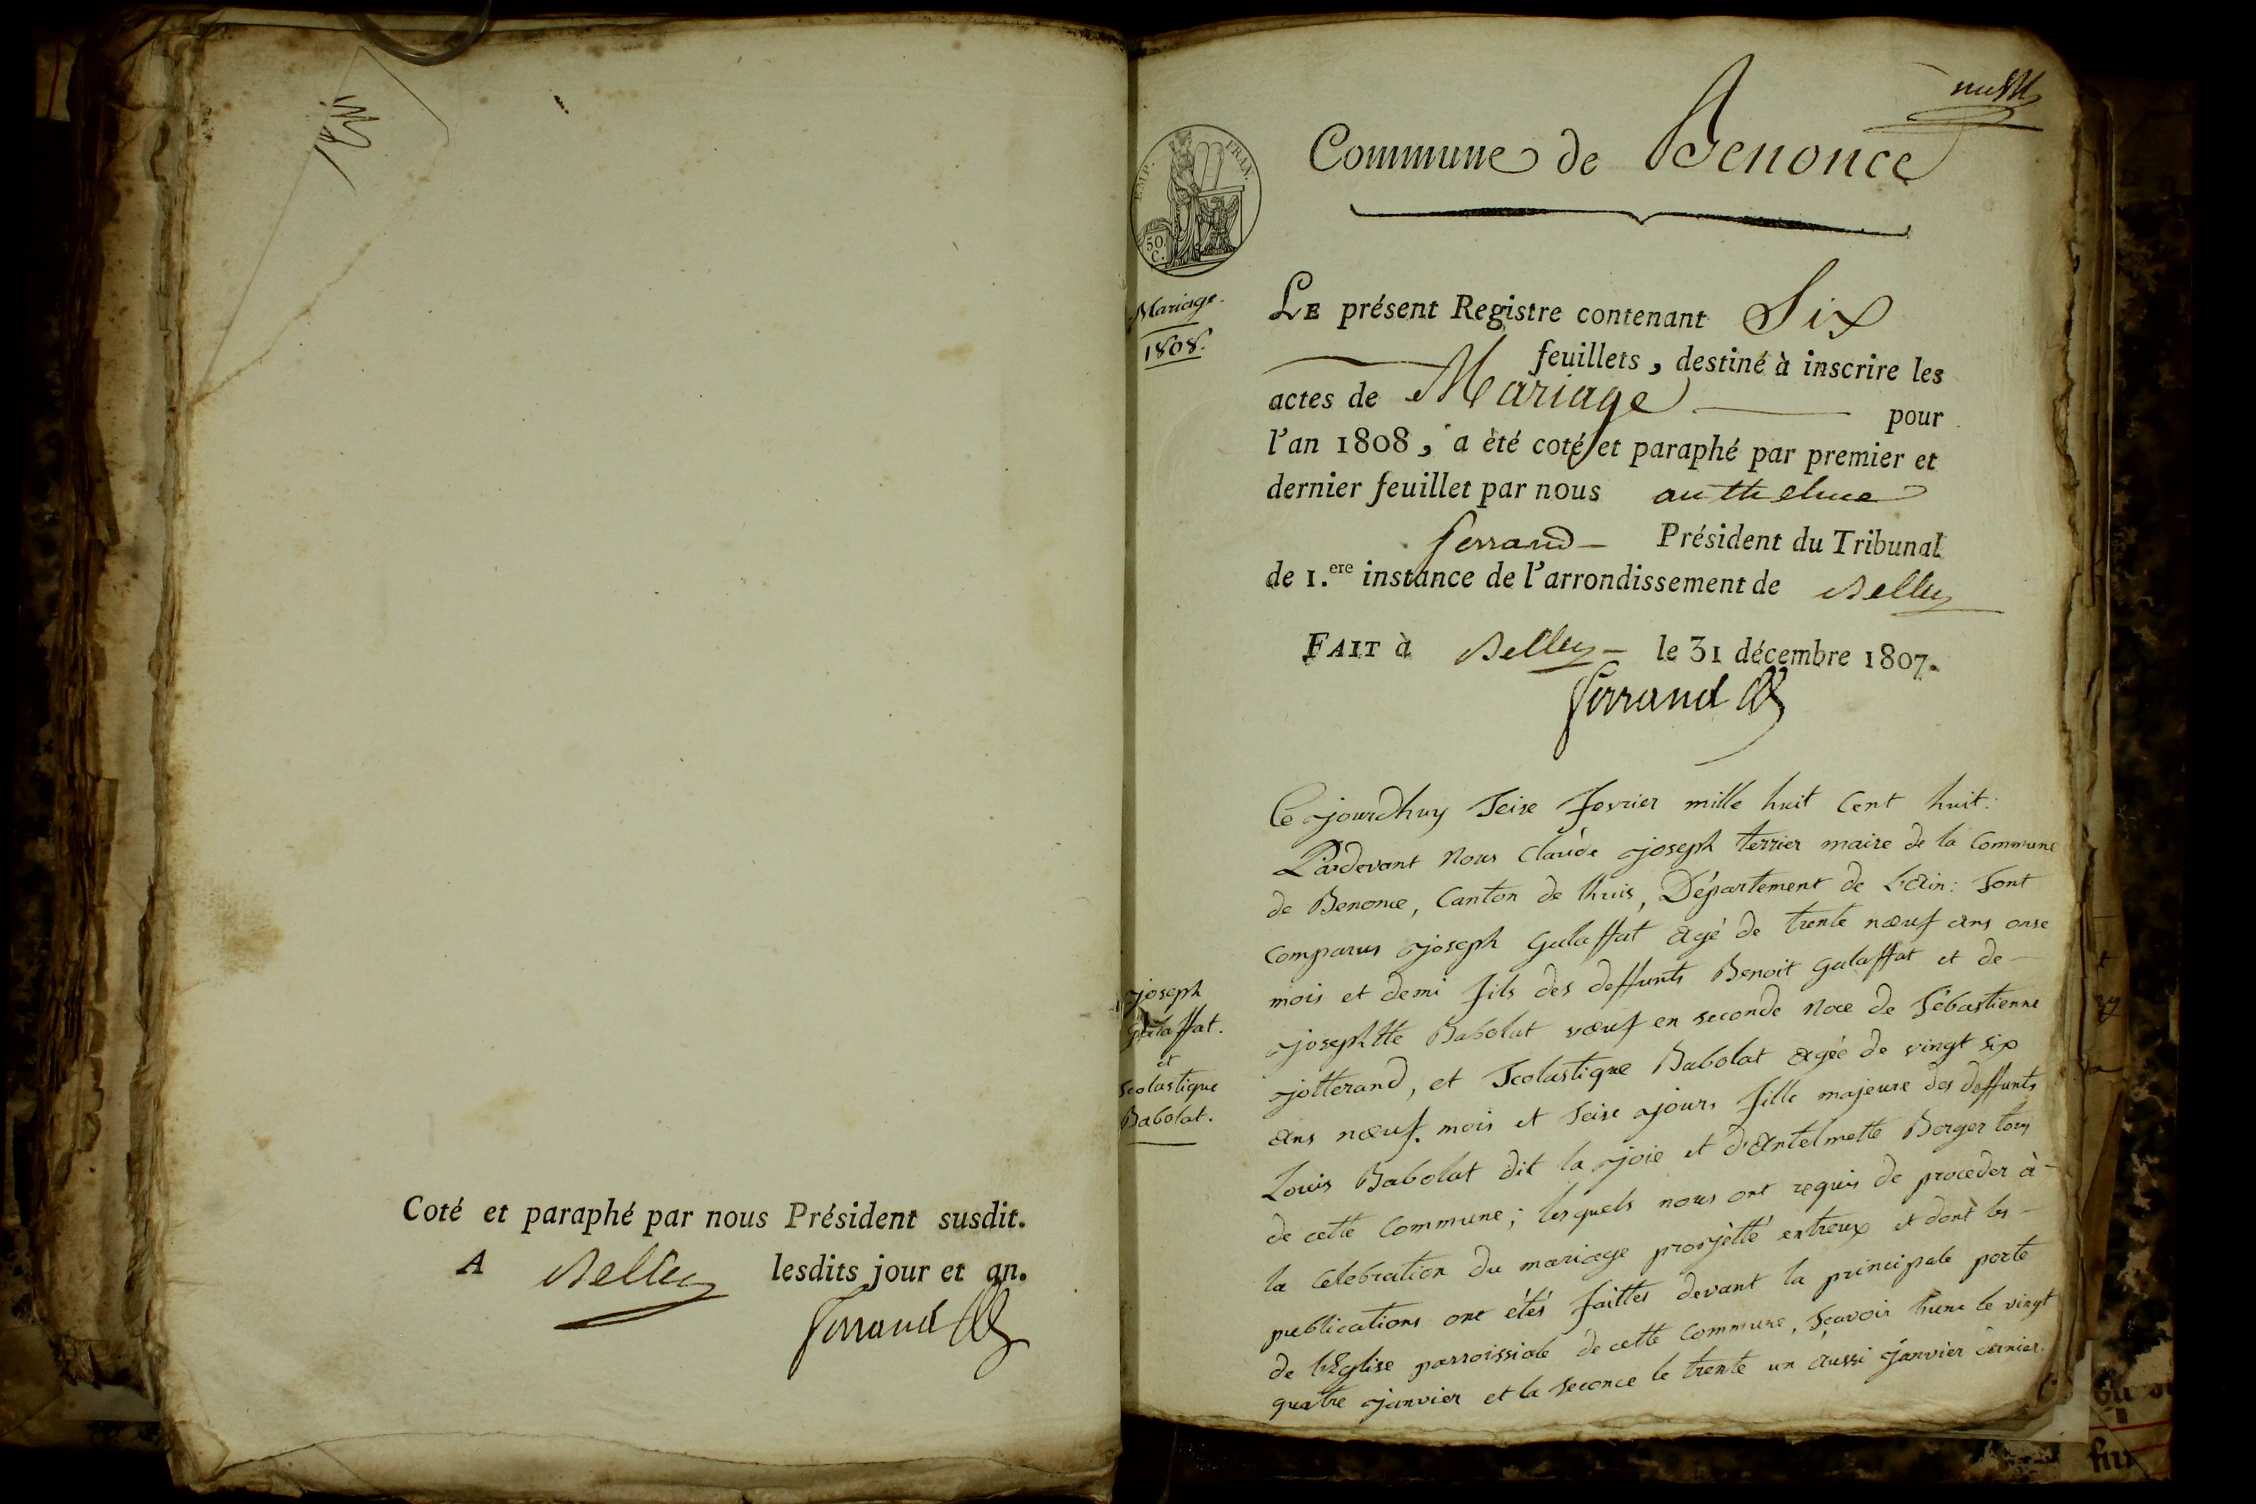 Coté et paraphé par nous Président susdit.
A Belley lesdits jour et an.
Ferrand
Commune de Benonce
EMP. FRAN.
50.
C.
Mariage.
1808.
LE présent Registre contenant Six
feuillets, destiné à inscrire les
actes de Mariage pour
l'an 1808, a été coté et paraphé par premier et
dernier feuillet par nous anthelme
ferrand Président du Tribunal
de 1.ere instance de l'arrondissement de Belley
FAIT à Belley le 31 décembre 1807.
Ferrand
Ce jourdhuy Seize fevrier mille huit Cent huit.
Pardevant Nous Claude joseph terrier maire de la Commune
de Benonce, Canton de lhuis, Département de L'Ain: Sont
Comparus joseph Gulaffat Agé de trente nœuf Ans onse
mois et demi fils des deffunts Benoit Gulaffat et de
josephtte Babolat vœuf en seconde Noce de Sébastienne
jotterand, et Scolastique Babolat Agée de vingt six
Ans nœuf mois et Seise jours fille majeure des deffunts
Louis Babolat dit la joie et d'Antelmette Berger tous
de cette Commune; lesquels nous ont requis de proceder à
la Celebration du mariage projetté entreux et dont les
publications ont étés faittes devant la principale porte
de L'Eglise parroissiale de cette Commune, Sçavoir lune le vingt
quatre janvier et la Seconde le trente un Aussi janvier dernier.
joseph
Gulaffat.
et
Scolastique
Babolat.